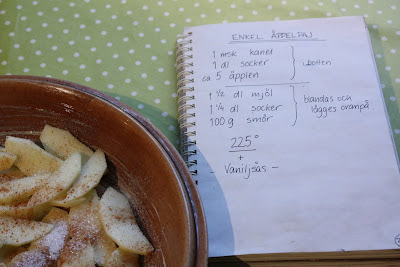 ENKEL ÄPPELPAJ
1 msk kanel
1 dl socker
ca 5 äpplen
i botten
1 ½ dl mjöl
1 ¼ dl socker
100 g smör
blandas och
lägges ovanpå
225°
+
- Vaniljsås -